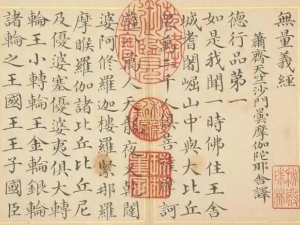 無量義經
蕭齊天竺沙門曇摩伽陀耶舍譯
德行品第一
如是我聞一時佛住王舍
城耆闍崛山中與大比丘
萬二千人菩薩摩訶
萬人天龍夜叉乾闥
婆阿修羅迦樓羅緊那羅
摩睺羅伽諸比丘比丘尼
及優婆塞優婆夷俱大轉
輪王小轉輪王金輪銀輪
諸輪之王國王王子國臣